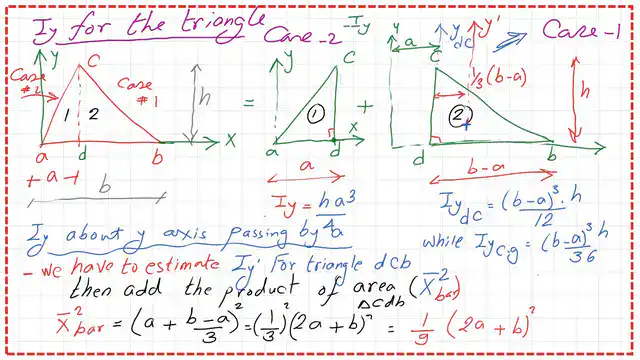 Iy for the triangle
Case-2
Iy
Case-1
y
C
Case #2
Case #1
1
2
h
a
d
b
x
a
b
=
y
C
1
a
d
x
a
Iy = ha³/4
+
y
a
y dc
y'
C
1/3(b-a)
2
h
d
b
b-a
Iy dc = (b-a)³·h/12
while Iy c.g = (b-a)³h/36
Iy about y axis passing by a
- we have to estimate Iy' for triangle dcb
then add the product of area Δcdb (X̄²bar)
X̄²bar = (a + b-a/3)² = (1/3)²(2a+b)² = 1/9 (2a+b)²